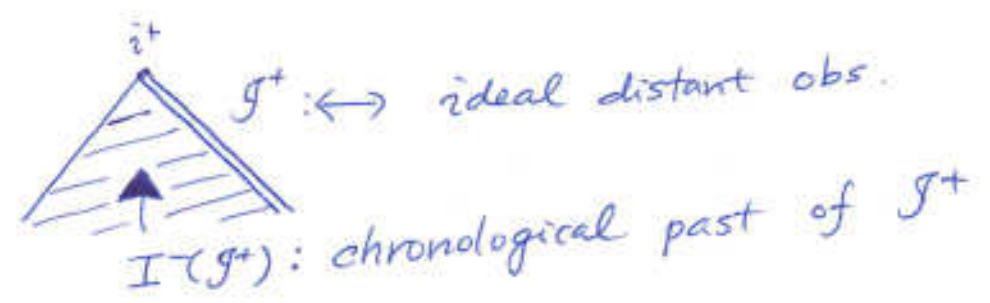 i⁺
𝒥⁺ :↔ ideal distant obs.
I⁻(𝒥⁺) : chronological past of 𝒥⁺